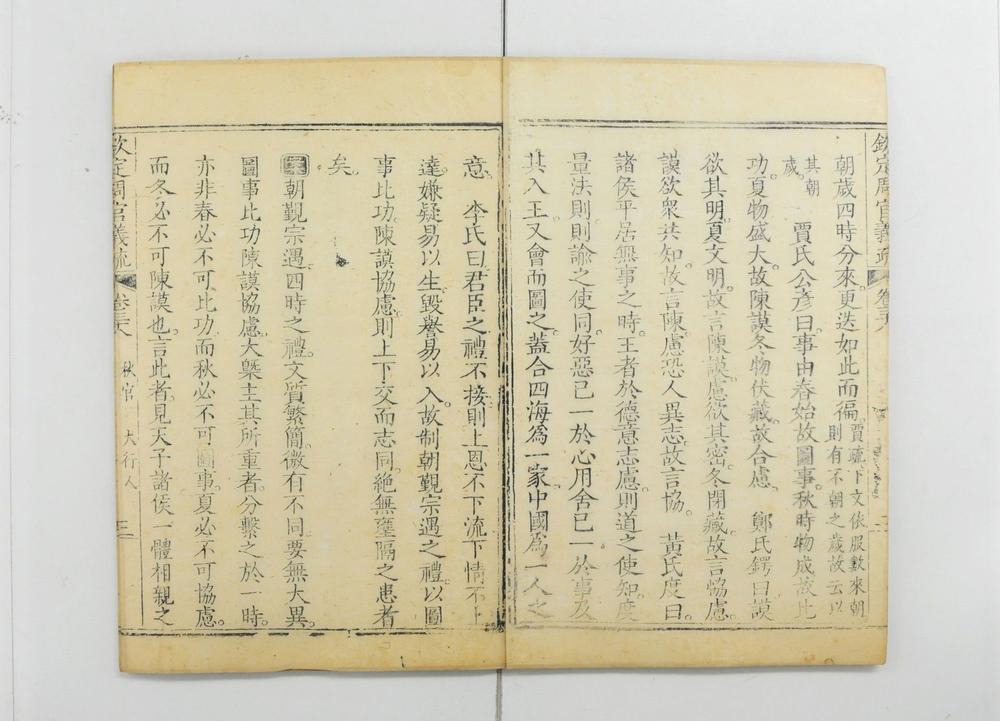 欽定周官義疏 卷三十八
朝歲四時分來更迭如此而徧賈疏下文依服數來朝
則有不朝之歲故云以
其朝
歲 賈氏公彥曰事由春始故圖事秋時物成故比
功夏物盛大故陳謨冬物伏藏故合慮 鄭氏鍔曰謨
欲其明夏文明故言陳謨慮欲其密冬閉藏故言協慮
謨欲衆共知故言陳慮恐人異志故言協 黃氏度曰
諸侯平居無事之時王者於德意志慮則道之使知度
量法則則諭之使同好惡已一於心用舍已一於事及
其入王又會而圖之蓋合四海為一家中國為一人之
意 李氏曰君臣之禮不接則上恩不下流下情不上
達嫌疑易以生毀譽易以入故制朝覲宗遇之禮以圖
事比功陳謨協慮則上下交而志同絶無壅隔之患者
矣
案朝覲宗遇四時之禮文質繁簡微有不同要無大異
圖事比功陳謨協慮大槩主其所重者分繫之於一時
亦非春必不可比功而秋必不可圖事夏必不可協慮
而冬必不可陳謨也言此者見天子諸侯一體相親之
欽定周官義疏 卷三十八 秋官 大行人 二